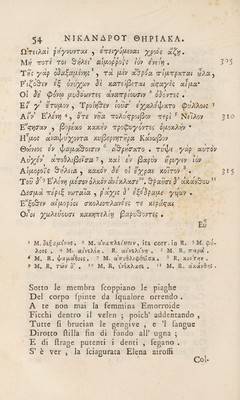 54 ΝΙΚΑΝΔΡΟΥ ΘΗΡΙΑΚΑ.
Ὠτειλαὶ ῥήγνυνται, ἐπειγόμεναι χροὸς ἄζῃ. 305
Μή ποτέ τοι θήλει' αἱμορροῒς ἰὸν ἐνείη.
Τῆς γὰρ ὀδαξαμένης¹, τὰ μὲν ἀθρόα πίμπραται οὖλα,
Ῥιζόθεν ἐξ ὀνύχων δὲ κατείβεται ἀσπαγὲς αἷμα·
Οἱ δὲ φόνῳ μυδόωντες ἀναπρίουσιν² ὀδόντες.
Εἴ γ' ἔτυμον, Τροίηθεν ἰοῦσ' ἐχαλέψατο φύλλοις³ 310
Αἰν' Ἑλένη⁴, ὅτε νῆα πολύστροβον περὶ⁵ Νεῖλον
Ἔστησαν, βορέαο κακὴν προφυγόντες ὁμοκλὴν
Ἦμος ἀναψύχοντα κυβερνητῆρα Κάνωβον
Θώνιος ἐν ψαμάθοισιν⁶ ἀθρήσατο. τύψε γὰρ αὐτὸν
Αὐχέν' ἀποθλιφθεῖσα⁷, καὶ ἐν βαρὺν ἤρυγεν ἰὸν
Αἱμοροῒς θήλεια, κακὸν δέ οἱ ἔχραε κοῖτον⁸. 315
Τοῦ δ'⁹ Ἑλένη μέσον ὁλκὸν ἀνέκλασε¹⁰. θραῦσε δ' ἀκάνθου¹¹
Δεσμὰ πέριξ νωταῖα, ῥάχις δ' ἐξέδραμε γυίων.
Ἐξόθεν αἱμορόοι σκολιοπλανέες τε κεράσαι
Οἶοι χωλεύουσι κακηπελίῃ βαρύθοντες.
Εὖ
¹ M. διξαμένης. ² M. ἀναπλείουσιν, ita corr. in R. ³ M. φύ-
λοις. ⁴ M. αἰνελίη. R. αἰνελένη. ⁵ M. παρά.
⁶ M. R. ψαμάθοις. ⁷ M. ἀποθλιφθεῖσα. ⁸ R. κοίτην.
⁹ R. τῶν δ'. ¹⁰ M. R. ἐνέκλασε. ¹¹ M. R. ἀκάνθης.
Sotto le membra scoppiano le piaghe
Del corpo spinte da squalore orrendo.
A te non mai la femmina Emorroide
Ficchi dentro il velen; poich' addentando,
Tutte si brucian le gengive, e 'l sangue
Dirotto stilla fin di fondo all' ugna;
E di strage putenti i denti, segano.
S' è ver, la sciagurata Elena airossi
Col-